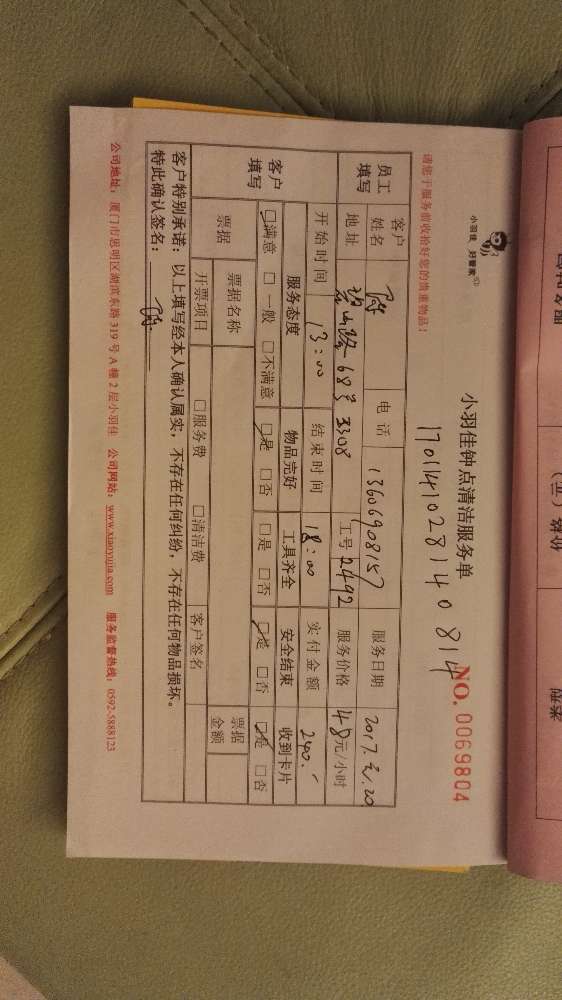 小羽佳 好管家
小羽佳钟点清洁服务单
1701141028140814
NO. 0069804
请您于服务前收拾好您的贵重物品!
员工填写 客户姓名 电话 13606908157 服务日期 2017.2.20
地址 68号3308 工号 2492 服务价格 48元/小时
开始时间 13:00 结束时间 18:00 实付金额 240.-
客户填写 服务态度 物品完好 工具齐全 安全结束 收到卡片
☑满意 □一般 □不满意 ☑是 □否 □是 □否 ☑是 □否 ☑是 □否
票据 票据名称 票据金额
开票项目 □服务费 □清洁费 客户签名
客户特别承诺:以上填写经本人确认属实,不存在任何纠纷,不存在任何物品损坏。
特此确认签名:
公司地址:厦门市思明区湖滨东路319号A幢2层小羽佳 公司网站:www.xiaoyujia.com 服务监督热线:0592-5888123